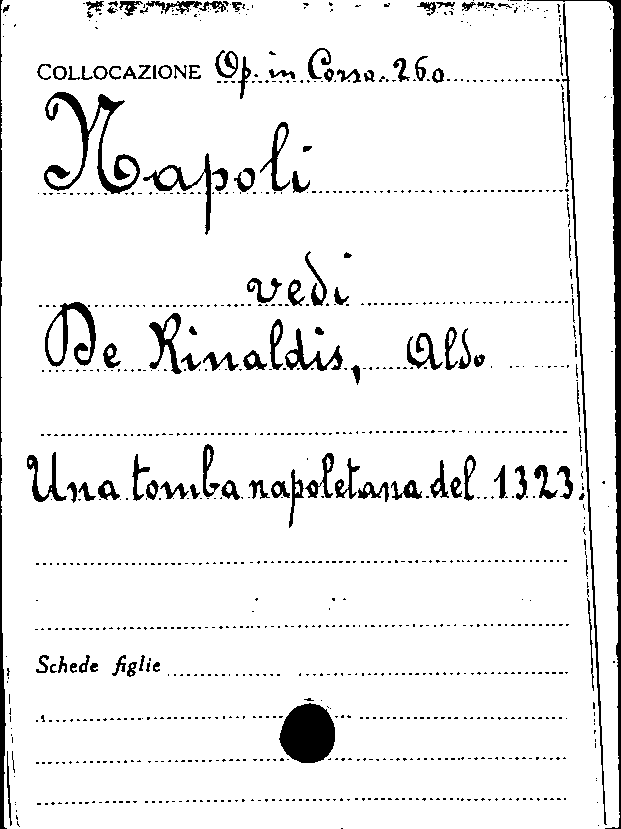 COLLOCAZIONE Op. in Corso. 260
Napoli
vedi
De Rinaldis, Aldo
Una tomba napoletana del 1323.
Schede figlie